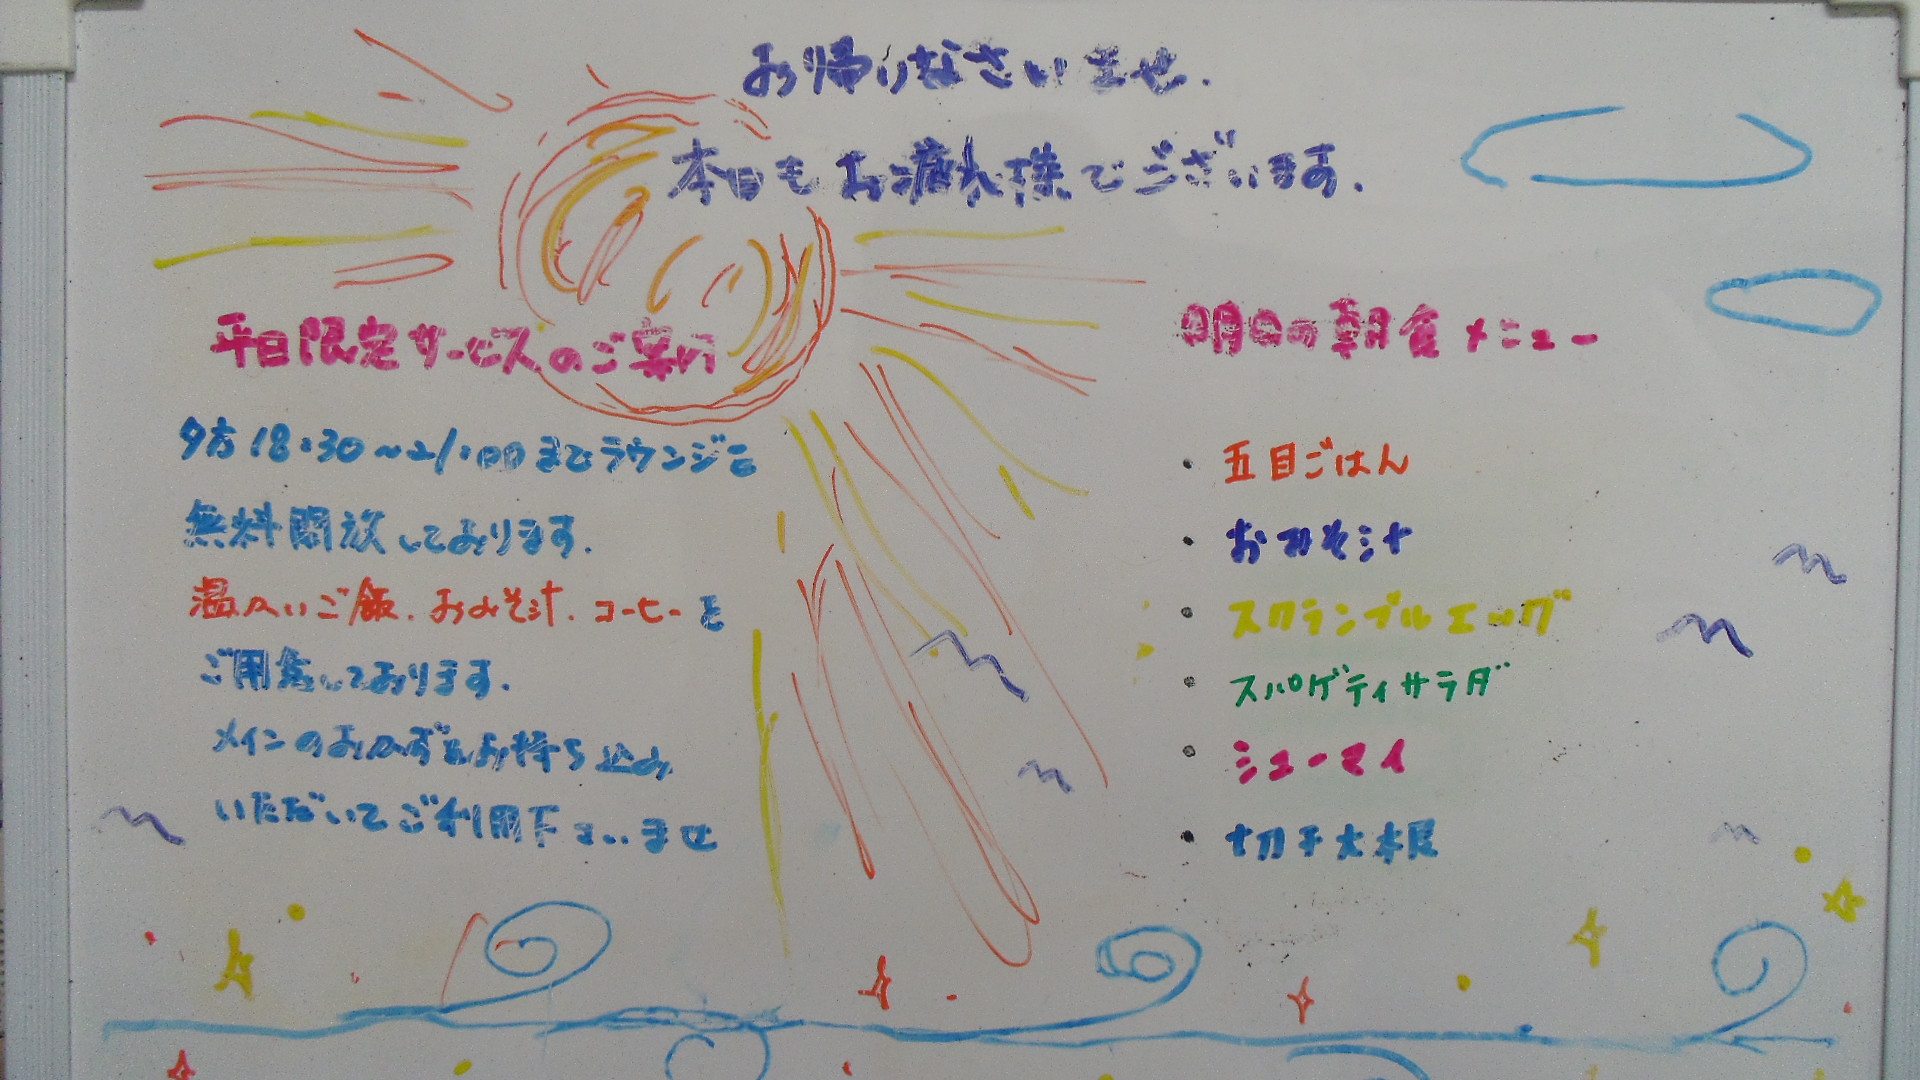 お帰りなさいませ.
本日もお疲れ様でございます.
平日限定サービスのご案内
夕方18:30~21:00までラウンジを
無料開放しております.
温かいご飯.おみそ汁.コーヒーを
ご用意しております.
メインのおかずをお持ち込み
いただいてご利用下さいませ
明日の朝食メニュー
・五目ごはん
・おみそ汁
・スクランブルエッグ
・スパゲティサラダ
・シューマイ
・切干大根